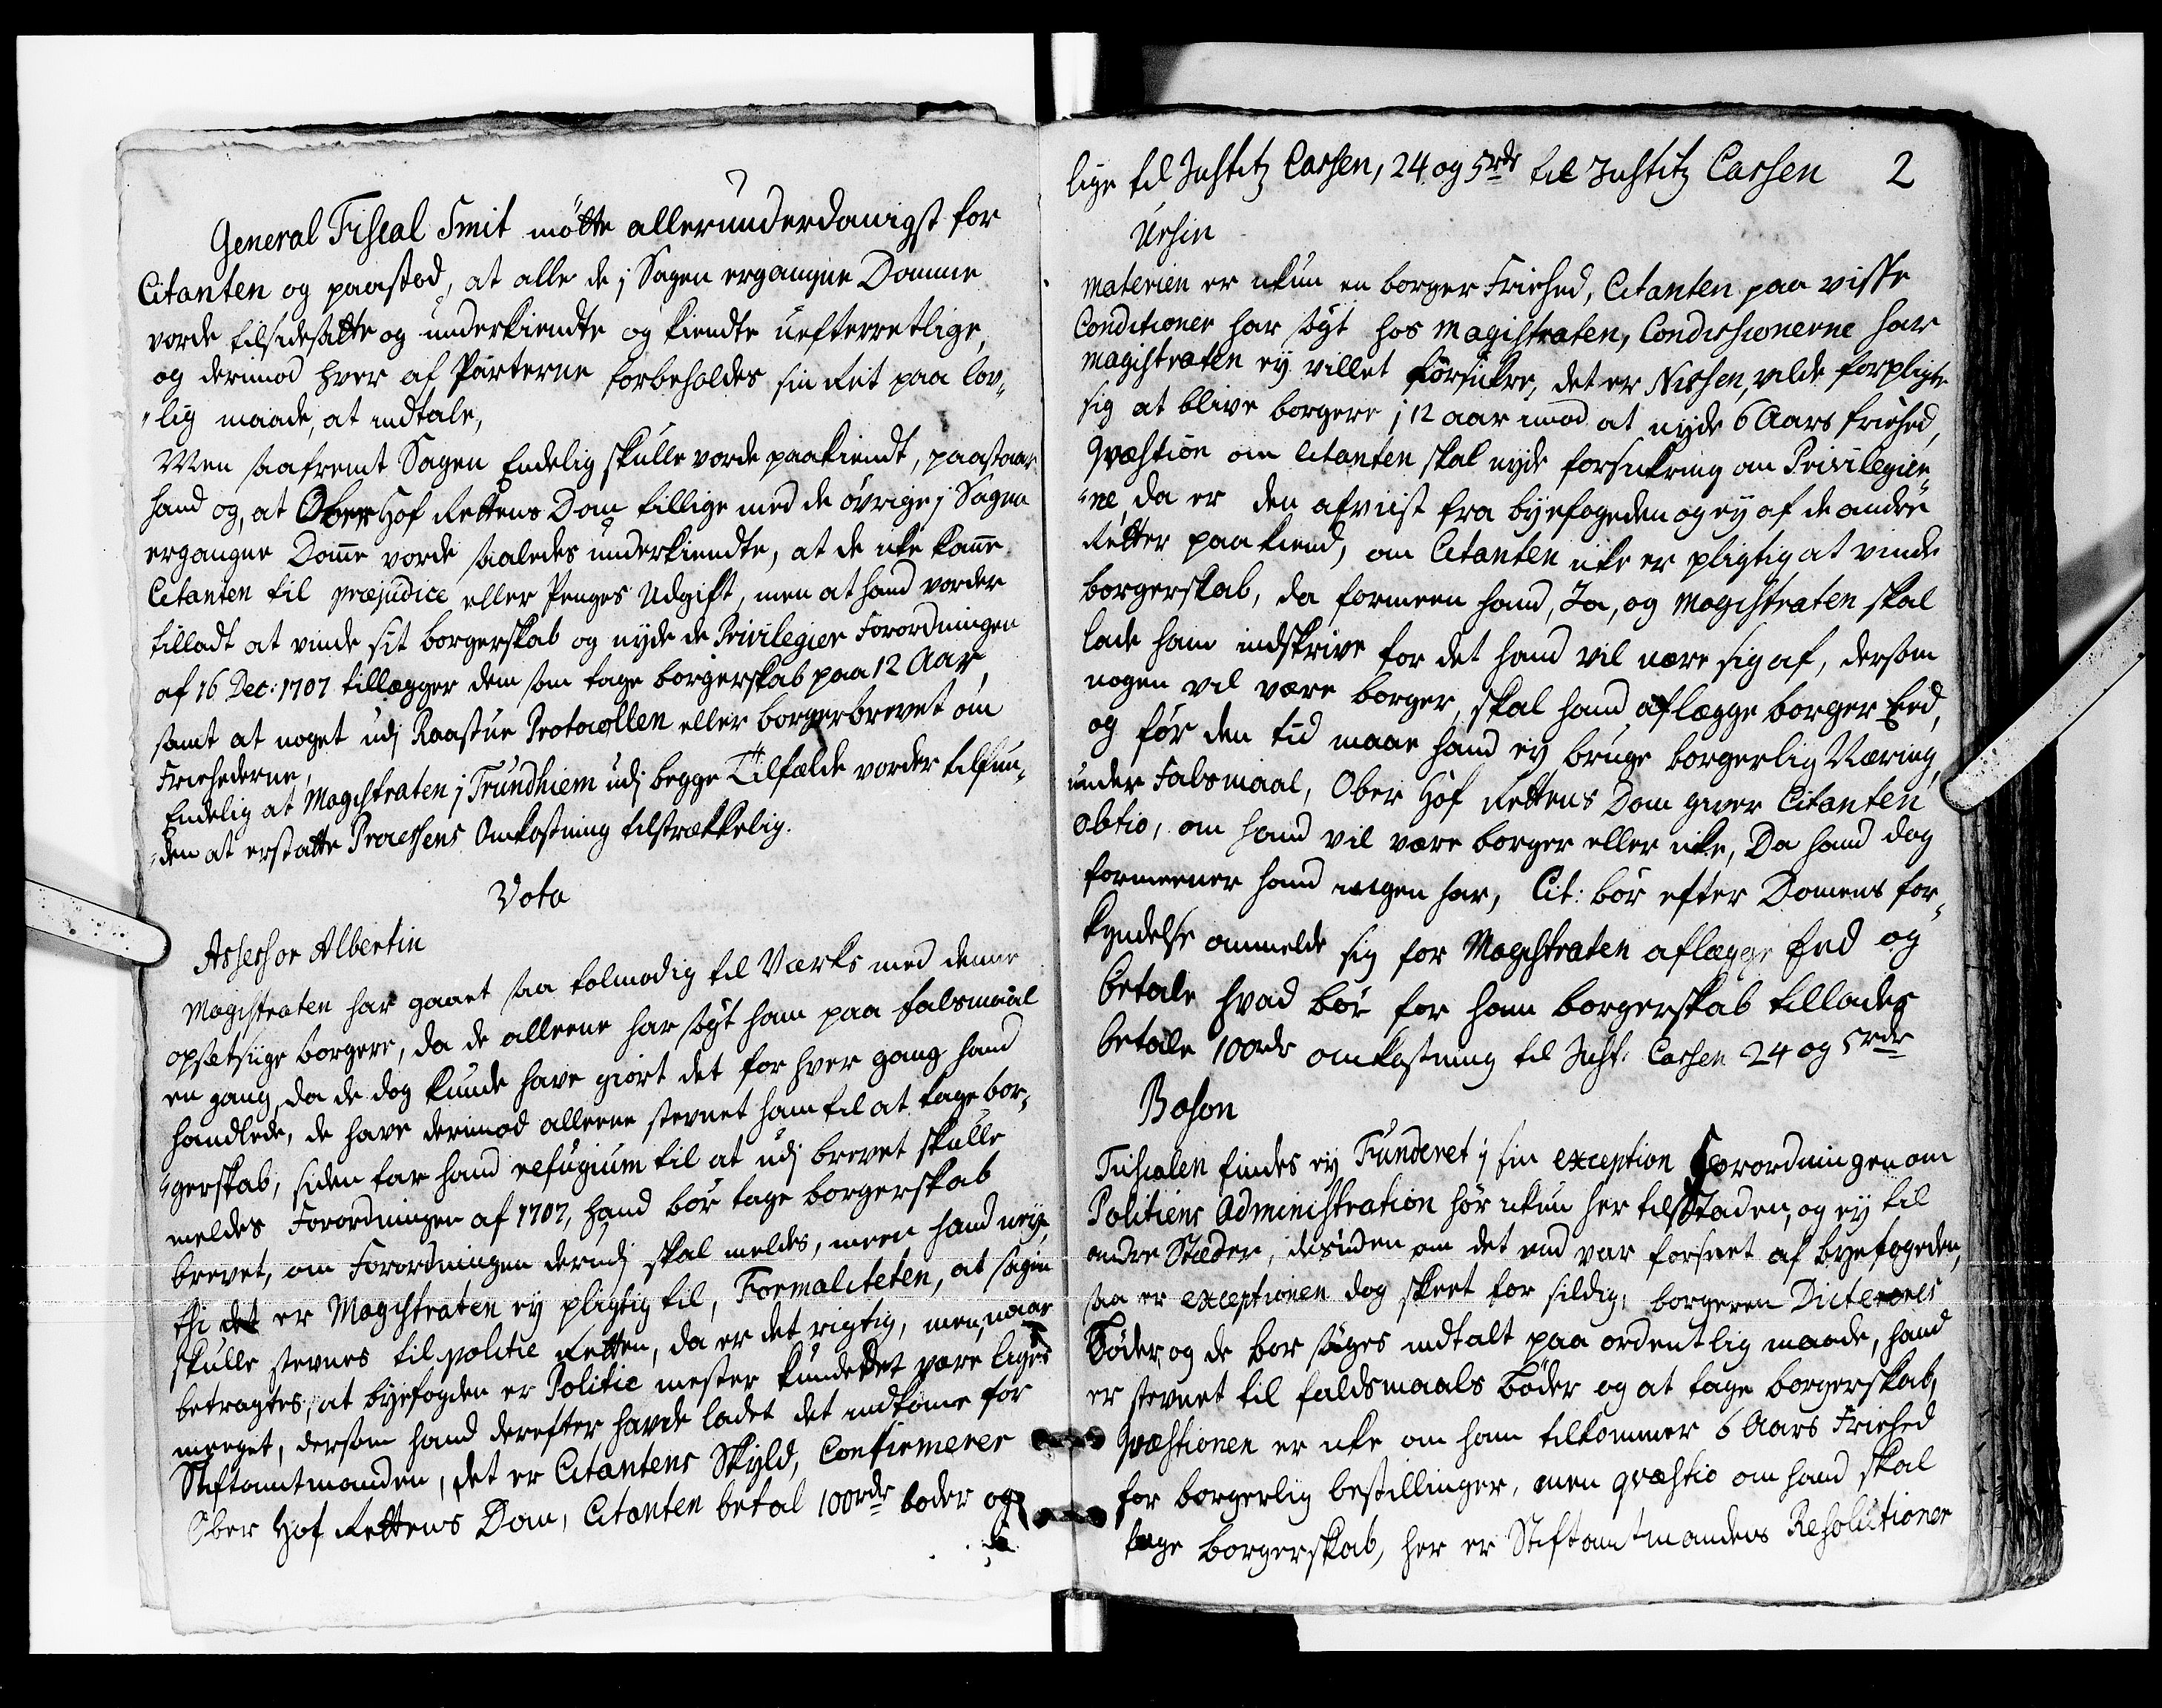 General Fiscal Smit mötte allerunderdanigst for
Citanten og paastod, at alle de j Sagen ergangne Domme
vorde tilsidesatte og underkiendte og kiendte uefterretlige,
og derimod hver af Parterne forbeholdes sin Ret paa lov„
„lig maade, at indtale,
Men saafremt Sagen Endelig skulle vorde paakiendt, paastaar
hand og, at Ober Hof Rettens Dom tillige med de övrige j Sagen
ergangne Domme vorde saaledes underkiendte, at de icke kanne
Citanten til præjudice eller Penges Udgift, men at hand vorder
tilladt at vinde sit borgerskab og nyde de Privilegier Forordningen
af 16 Dec: 1707 tillægger dem som tage borgerskab paa 12 Aar,
samt at noget udj Raastue Protocollen eller borgerbrevet om
Friehederne,
Endelig at Magistraten j Trundhiem udj begge Tilfælde vorder tilfun„
„den at erstatte Processens Omkostning tilstrækkelig.
Vota
Assessor Albertin
Magistraten har gaaet saa tolmodig til Værks med denne
opsetsiige borgere, da de alleene har sögt ham paa falsmaal
en gang, da de dog kunde have giort det for hver gang hand
handlede, de have derimod alleene stevnet ham til at tage bor„
„gerskab, siden tar hand refugium til at udj brevet skulle
meldes Forordningen af 1707, hand bör tage borgerskab
brevet, om Forordningen derudj skal meldes, meen hand neij,
thi det er Magistraten ey pligtig til, Formaliteten, at sagen
skulle stevnes til politie Retten, da er det rigtig, men naar
betragtes, at byefogden er Politie mester kunde det være lige
meeget, dersom hand derefter havde ladet det indkome for
Stiftamtmanden, det er Citantens Skyld, Confirmerer
Ober Hof Rettens Dom, Citanten betal 100rdr boder og
lige til Justitz Cassen, 24 og 5rdr til Justitz Cassen 2
Ursin
Materien er ickun en borger Friehed, Citanten paa visse
Conditioner har sögt hos Magistraten, Condissionerne har
Magistraten ey villet forsickre, det er Nissen, vilde forpligte
sig at blive borgere j 12 aar imod at nyde 6 Aars friehed,
Qvæstion om Citanten skal nyde forsickring om Privilegier„
„ne, da er den afviist fra byefogeden og ey af de andre
Retter paakiend, om Citanten icke er pligtig at vinde
borgerskab, da formeen hand, Ja, og Magistraten skal
lade ham indskrive for det hand vil nære sig af, dersom
nogen vil være borger, skal hand aflægge borger Eed,
og för den tid maae hand ey bruge borgerlig Næring,
under Falsmaal, Ober Hof Rettens Dom giver Citanten
obtio, om hand vil være borger eller icke, Da hand dog
formeener hand ingen har, Cit: bör efter Domens for„
kyndelse anmelde sig for Magistraten aflægge Eed og
betale hvad bör for ham borgerskab tillades
betale 100rdr omkostning til Just: Cassen 24 og 5rdr
Boson
Fiscalen findes ey Funderet j sin exception Forordningen om
Politiens Administration hör ickun her til Staden, og ey til
andre Stæder, desuden om det end var forseet af byefogeden,
saa er exceptionen dog skeet for sildig, borgeren Dicteres
Böder, og de bor söges indtalt paa ordentlig maade, hand
er stevnet til faldsmaals böder og at tage borgerskab,
Qvæstionen er icke om ham tilkommer 6 Aars Friehed
for borgerlig bestillinger, men qvæstio om hand skal
tage borgerskab, her er Stiftamtmandens Resolutioner